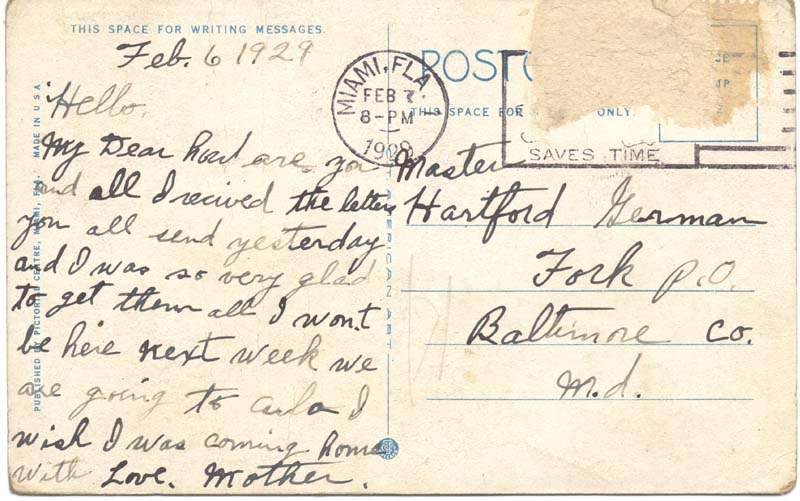 THIS SPACE FOR WRITING MESSAGES.
Feb. 6 1929
Hello.
My Dear how are you
and all I recived the letters
you all send yesterday
and I was so very glad
to get them all I won't
be here next week we
are going to I
wish I was coming home
with Love. Mother.
PUBLISHED BY PICTORIAL CENTRE, MIAMI, FLA. MADE IN U S A
AMERICAN ART
MIAMI, FLA.
FEB 7
8-PM
POST
THIS SPACE FOR ONLY
SAVES TIME
Master
Hartford German
Fork P.O.
Baltimore Co.
M.d.